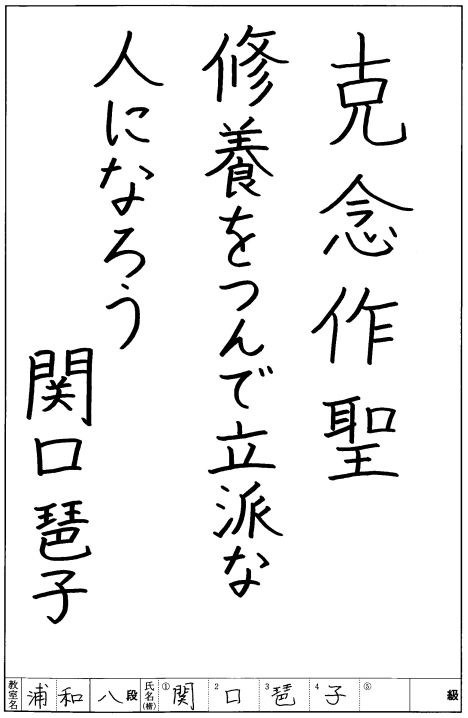 克念作聖
修養をつんで立派な
人になろう
関口琶子
教室名 浦和 八段 氏名(楷) ①関 ②口 ③琶 ④子 ⑤ 級